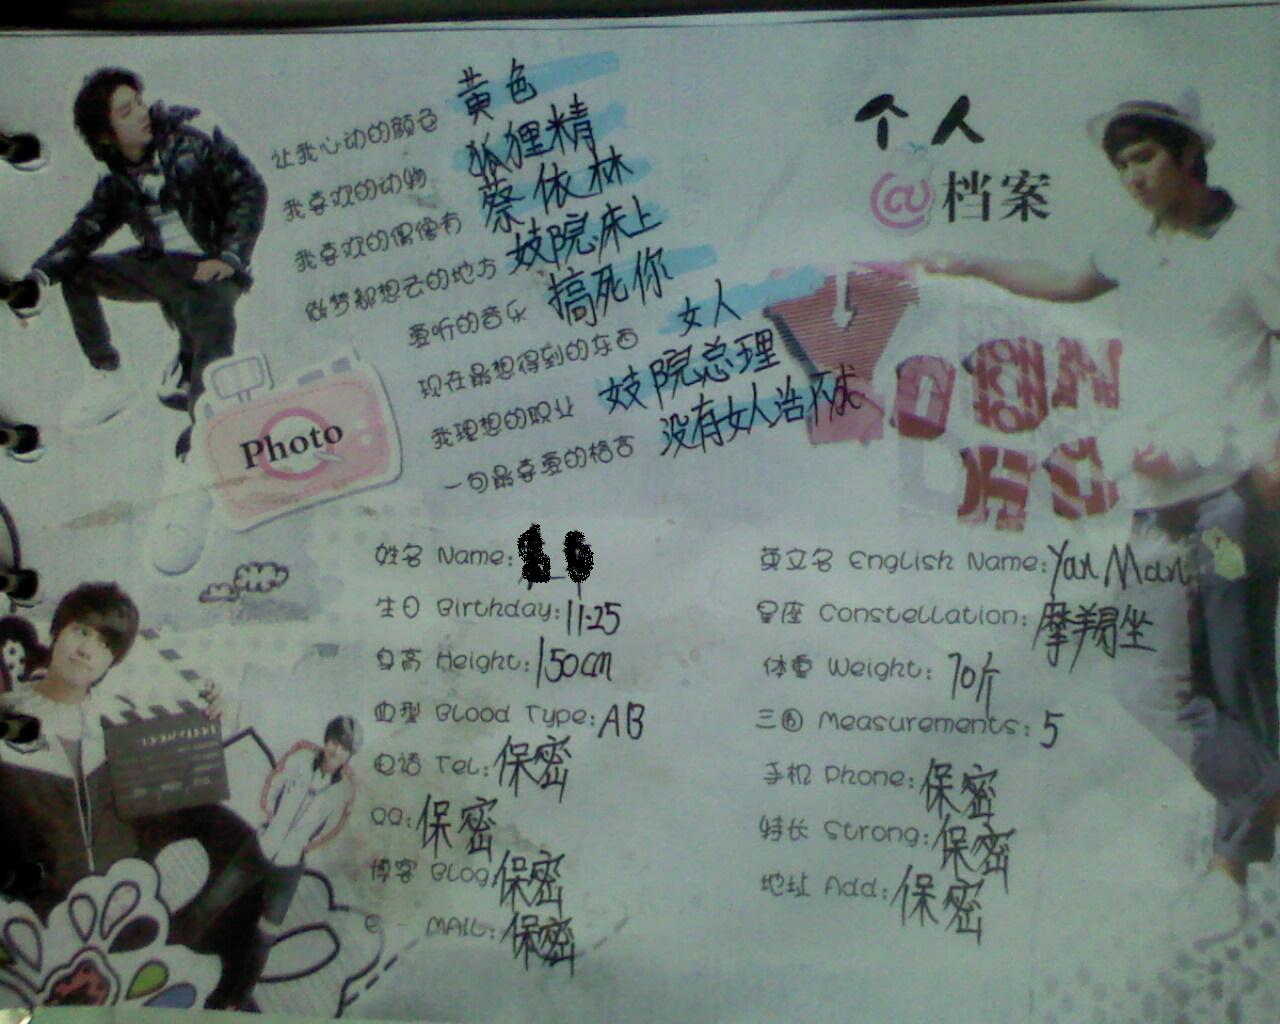 个人
@档案
让我心动的颜色 黄色
我喜欢的动物 狐狸精
我喜欢的偶像有 蔡依林
做梦都想去的地方 妓院床上
爱听的音乐 搞死你
现在最想得到的东西 女人
我理想的职业 妓院总理
一句最喜爱的格言 没有女人浩不成
Photo
姓名 Name:
英文名 English Name: Yan Man
生日 Birthday: 11:25
星座 Constellation: 摩翔坐
身高 Height: 150cm
体重 Weight: 70斤
血型 Blood Type: AB
三围 Measurements: 5
电话 Tel: 保密
手机 Phone: 保密
QQ: 保密
特长 Strong: 保密
博客 Blog: 保密
地址 Add: 保密
e-MAIL: 保密